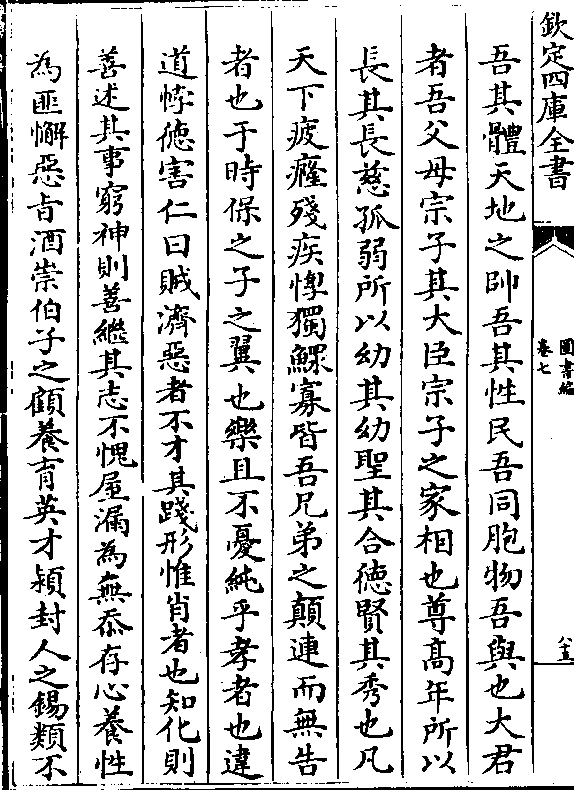 欽定四庫全書
圖書編
卷七
八五
吾其體天地之帥吾其性民吾同胞物吾與也大君
者吾父母宗子其大臣宗子之家相也尊髙年所以
長其長慈孤弱所以幼其幼聖其合徳賢其秀也凡
天下疲癃殘疾惸獨鰥寡皆吾兄弟之顛連而無告
者也于時保之子之翼也樂且不憂純乎孝者也違
道悖徳害仁曰賊濟惡者不才其踐形惟肖者也知化則
善述其事窮神則善繼其志不愧屋漏為無忝存心養性
為匪懈惡㫖酒崇伯子之顧養育英才潁封人之錫類不